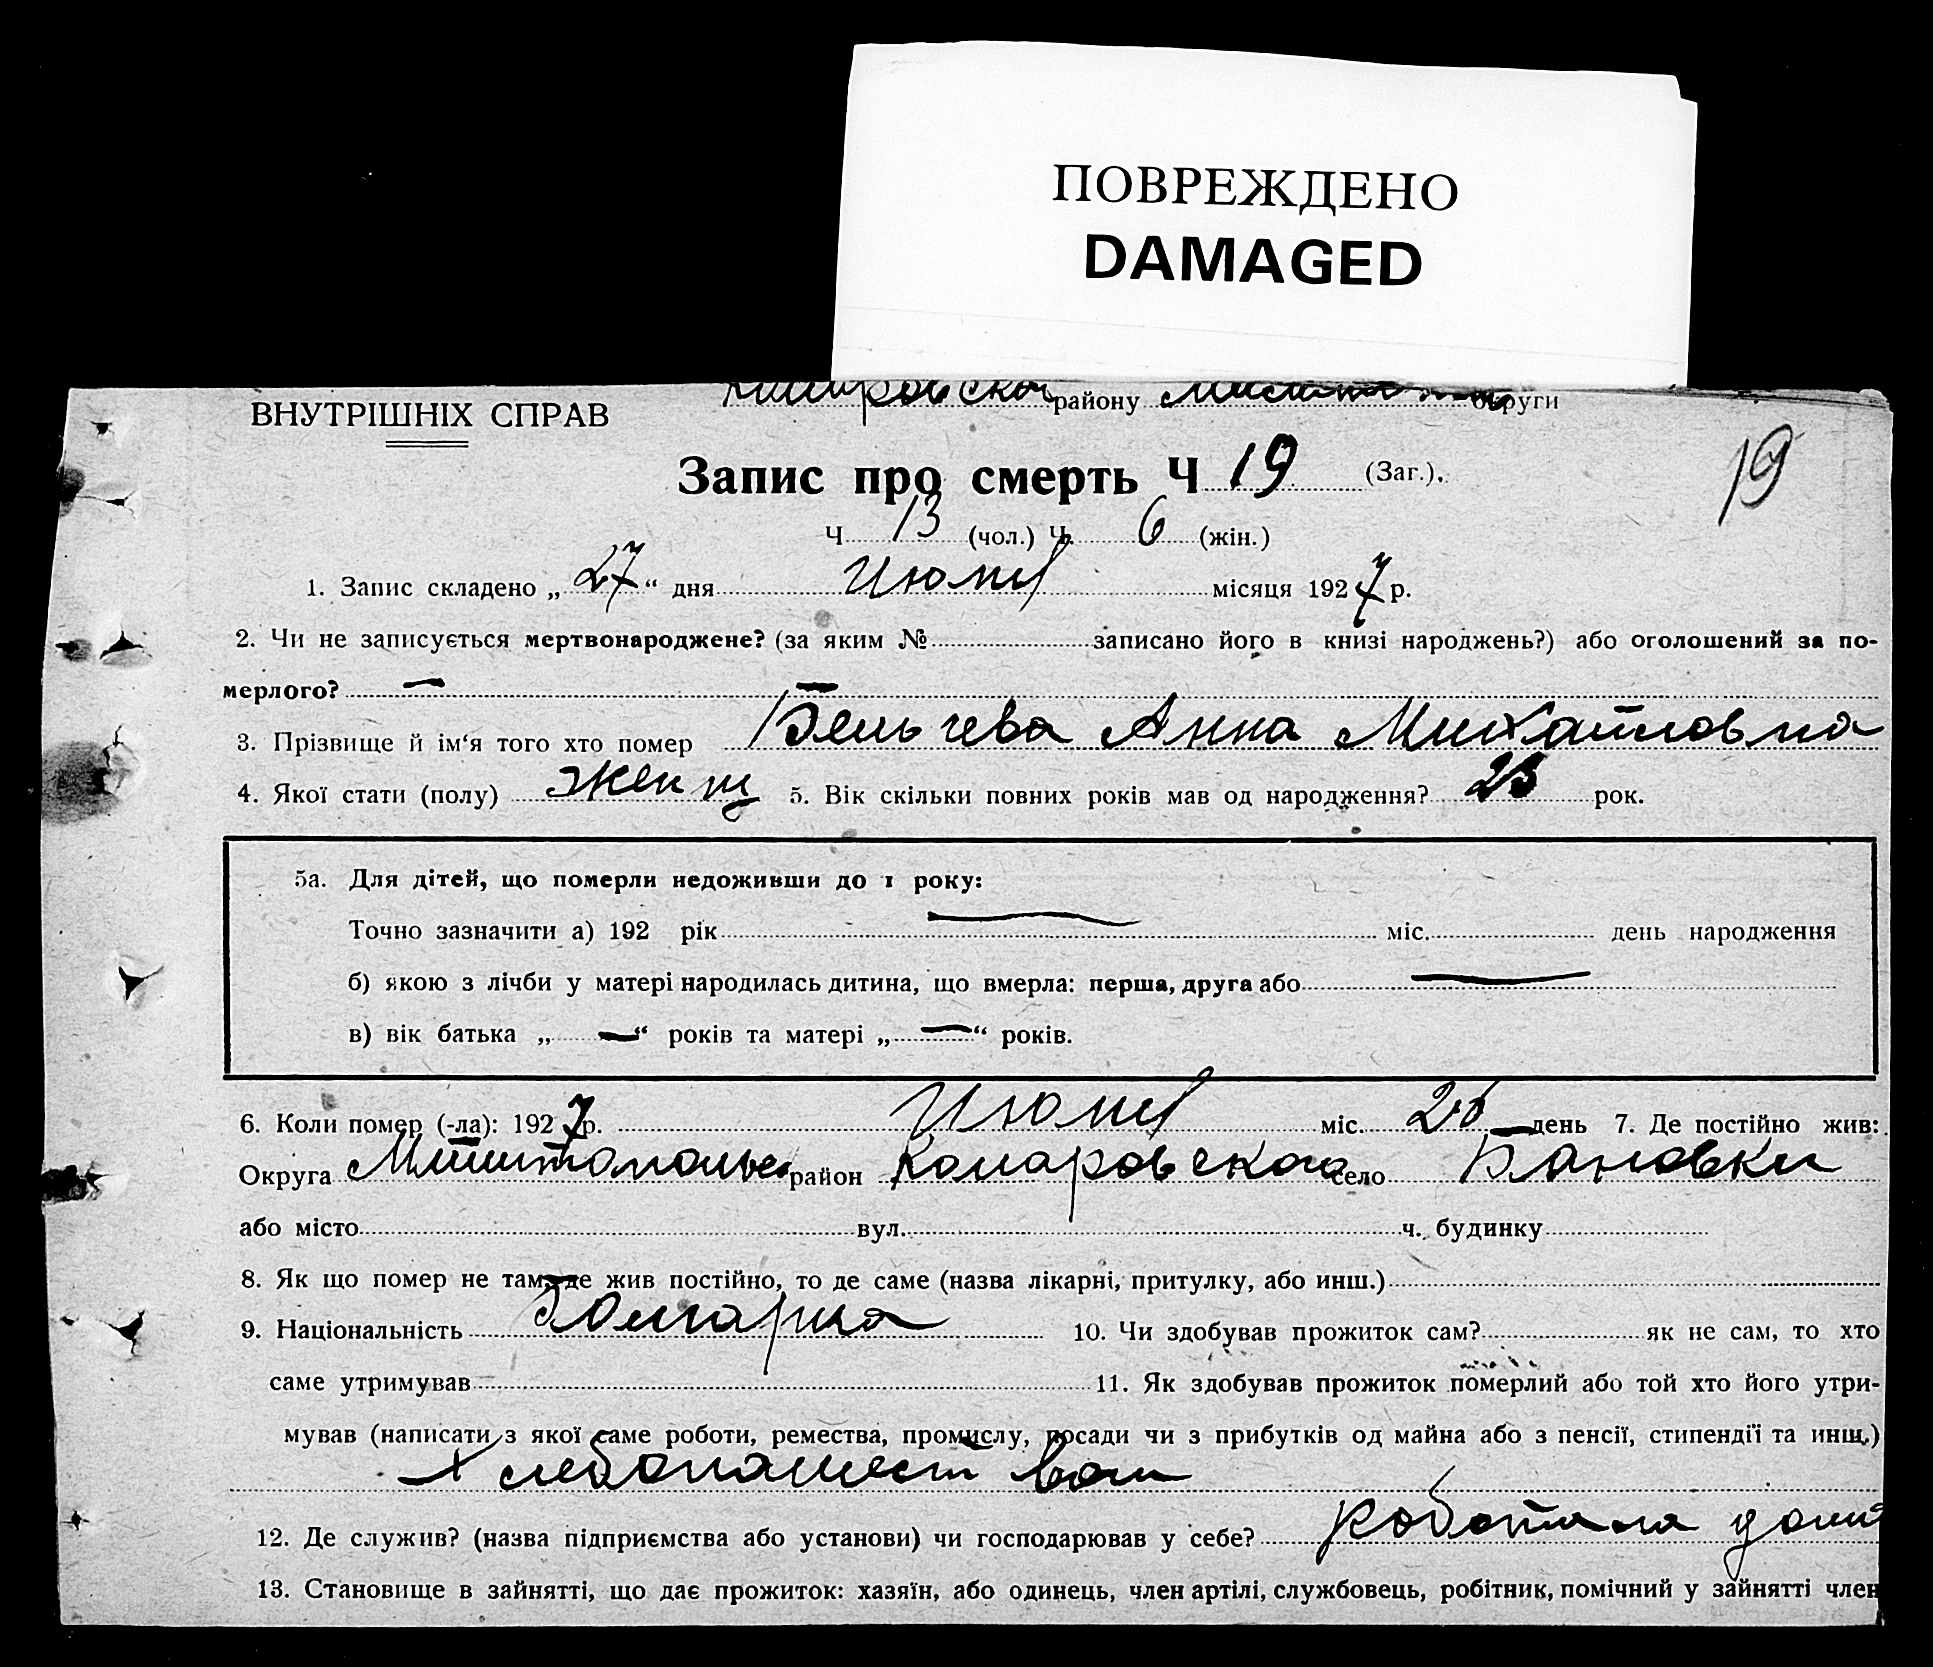 ПОВРЕЖДЕНО
DAMAGED
ВНУТРІШНІХ СПРАВ району округи
Запис про смерть Ч 19 (Заг.).
19
Ч 13 (чол.) Ч. 6 (жін.)
1. Запис складено „27“ дня Июля місяця 1927 р.
2. Чи не записується мертвонароджене? (за яким № записано його в книзі народжень?) або оголошений за по-
мерлого? —
3. Прізвище й ім‘я того хто помер Бельчева Анна Михайловна
4. Якої стати (полу) женщ 5. Вік скільки повних років мав од народження? рок.
5а. Для дітей, що померли недоживши до 1 року:
Точно зазначити а) 192 рік — міс. день народження
б) якою з лічби у матері народилась дитина, що вмерла: перша, друга або —
в) вік батька „—“ років та матері „—“ років.
6. Коли помер (-ла): 1927 р. Июля міс. день 7. Де постійно жив:
Округа район Комаровского село Бановки
або місто вул. ч. будинку
8. Як що помер не там, де жив постійно, то де саме (назва лікарні, притулку, або инш.)
9. Національність Болгарка 10. Чи здобував прожиток сам? як не сам, то хто
саме утримував 11. Як здобував прожиток померлий або той хто його утри-
мував (написати з якої саме роботи, ремества, промислу, посади чи з прибутків од майна або з пенсії, стипендії та инш.)
Хлебопашеством
12. Де служив? (назва підприємства або установи) чи господарював у себе? работала дома
13. Становище в зайнятті, що дає прожиток: хазяїн, або одинець, член артілі, службовець, робітник, помічний у зайнятті член